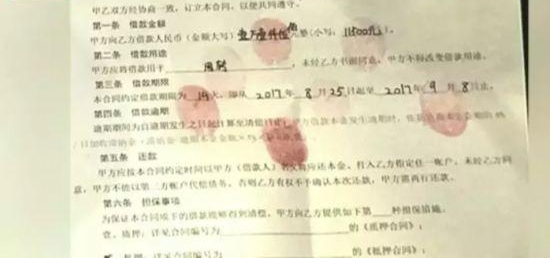 甲乙双方经协商一致，订立本合同，以便共同遵守。
第一条 借款金额
甲方向乙方借款人民币（金额大写）壹万壹仟伍佰元整（小写：11500元）。
第二条 借款用途
甲方应将借款用于 周转 ，未经乙方书面同意，甲方不得改变借款用途。
第三条 借款期限
本合同约定借款期限为 14天，即从 2017年 8 月 25日起至 2017年 9 月 8日止。
第四条 借款逾期
逾期期间为自逾期发生之日起计算至清偿日止。
第五条 还款
甲方应按本合同约定时间以甲方（借款人）名义将应还本金，打入乙方指定任一账户，未经乙方同
意，甲方不能以第三方账户代偿债务，否则乙方有权不予确认本次还款，甲方需再行还款。
第六条 担保事项
为保证本合同项下的借款能够得到清偿，甲方向乙方提供如下第 种担保措施。
壹、质押：详见合同编号为 的《质押合同》；
抵押：详见合同编号为 的《抵押合同》；